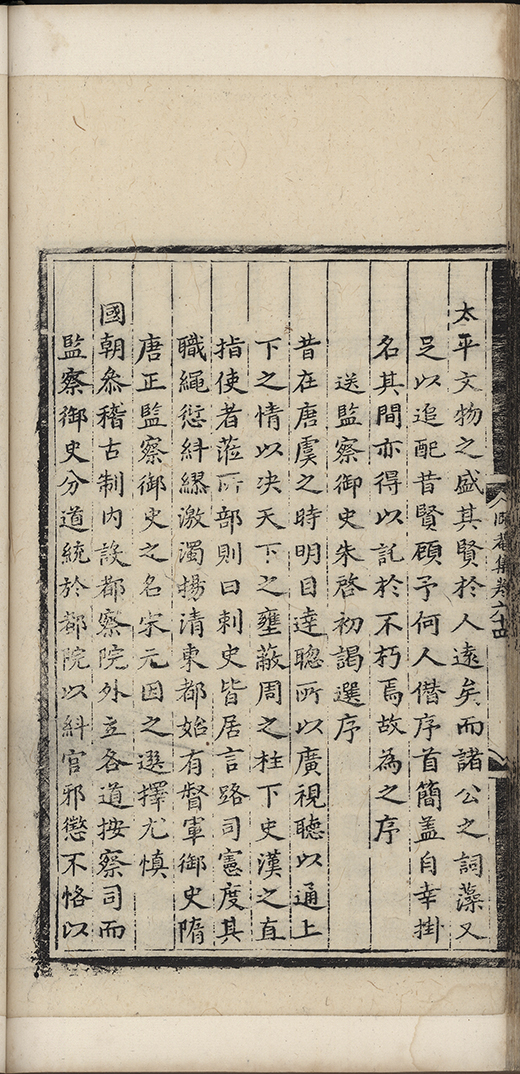 太平文物之盛其賢於人遠矣而諸公之詞藻又
足以追配昔賢顧予何人僭序首簡盖自幸掛
名其間亦得以託於不朽焉故為之序
送監察御史朱啓初謁選序
昔在唐虞之時明目達聰所以廣視聽以通上
下之情以决天下之壅蔽周之柱下史漢之直
指使者蒞所部則曰刺史皆居言路司憲度其
職繩愆紏繆激濁揚清東都始有督軍御史隋
唐正監察御史之名宋元因之選擇尤慎
國朝叅稽古制内設都察院外立各道按察司而
監察御史分道統於都院以紏官邪懲不恪以
集卷六十四